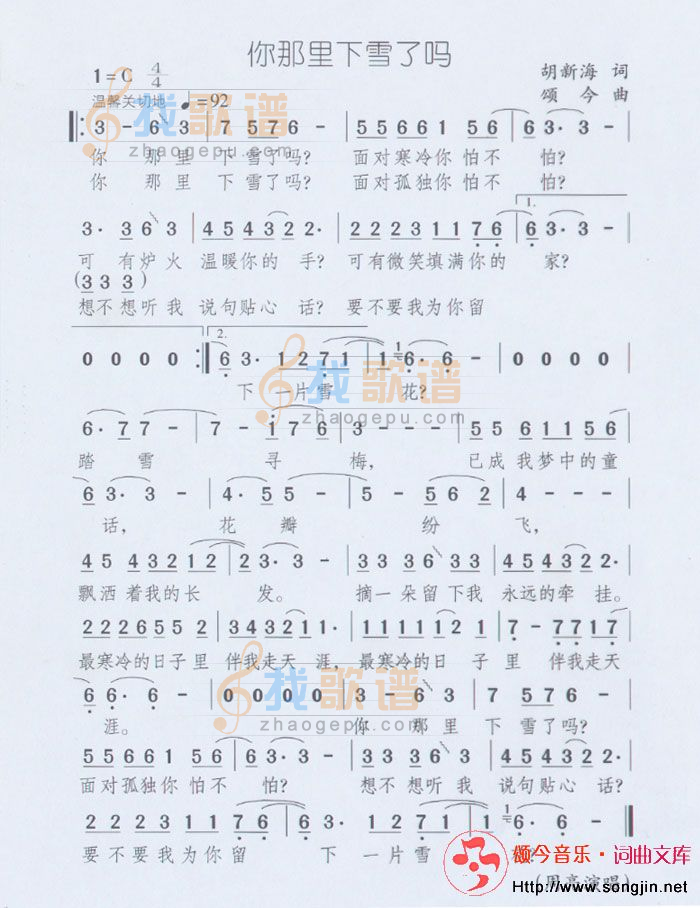 你那里下雪了吗
1=C 4/4
胡新海 词
温馨关切地 ♩=92
颂 今 曲
3 - 6 3 | 7 5 7 6 - | 5 5 6 6 1 5 5 6 | 6 3· 3 - |
你 那 里 下 雪 了 吗? 面对寒冷你 怕 不 怕?
你 那 里 下 雪 了 吗? 面对孤独你 怕 不 怕?
1.
3· 3 6 3 | 4 5 4 3 2 2· | 2 2 2 3 1 1 7 6 | 6 3· 3 - |
可 有 炉 火 温暖你的 手? 可有微笑填满你的 家?
(3 3 3)
想不想听我 说句贴心 话? 要不要我为你留
2.
0 0 0 0 :‖ 6 3· 1 2 7 1 | 1 6· 6 - | 0 0 0 0 |
下 一片雪 花?
6· 7 7 - | 7 - 1 7 6 | 6 - - - | 5 5 6 1 1 5 6 |
踏 雪 寻 梅, 已成我梦中的童
6 3· 3 - | 4· 5 5 - | 5 5 6 2 - | 2 - - - |
话, 花 瓣 纷 飞,
4 5 4 3 2 1 2 | 2 3· 3 - | 3 3 3 6 3 3 | 4 5 4 3 2 2· |
飘洒着我的长 发。 摘一朵留下我 永远的牵 挂。
2 2 2 6 5 5 2 | 3 4 3 2 1 1· | 1 1 1 1 1 2 1 | 7 - 7 7 1 7 |
最寒冷的日子里 伴我走天 涯, 最寒冷的日 子 里 伴我走天
6 6· 6 - | 3 - 6 3 | 7 5 7 6 - |
涯。 你 那 里 下 雪 了 吗?
5 5 6 6 1 5 5 6 | 6 3· 3 - | 3 3 3 6 3 | 4 5 4 3 2 2· |
面对孤独你 怕 不 怕? 想 不 想 听 我 说句贴心 话?
2 2 2 3 1 1 7 6 | 6 3· 3 - | 1 2 7 1 - | 1 6· 6 - ‖
要不要我为你留 下 一 片 雪
(周亮演唱)
找歌谱
zhaogepu.com
颂今音乐·词曲文库
Http://www.songjin.net